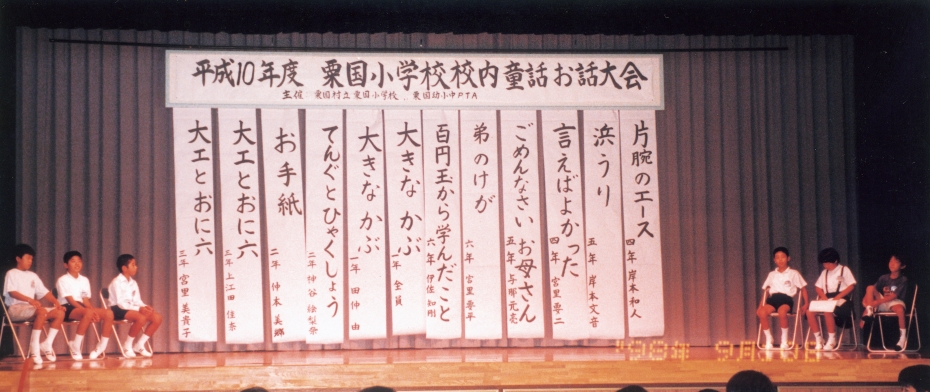 平成10年度 粟国小学校校内童話お話大会
主催 粟国村立粟国小学校 粟国幼小中PTA
片腕のエース
四年 岸本和人
浜うり
五年 岸本文音
言えばよかった
四年 宮里要二
ごめんなさい お母さん
五年 与那元亮
弟のけが
六年 宮里要平
百円玉から学んだこと
六年 伊佐知剛
大きなかぶ
一年 全員
大きなかぶ
一年 田仲由
てんぐとひゃくしょう
二年 仲谷絵梨奈
お手紙
二年 仲本美
大工とおに六
三年 上江田佳奈
大工とおに六
三年 宮里美貴子